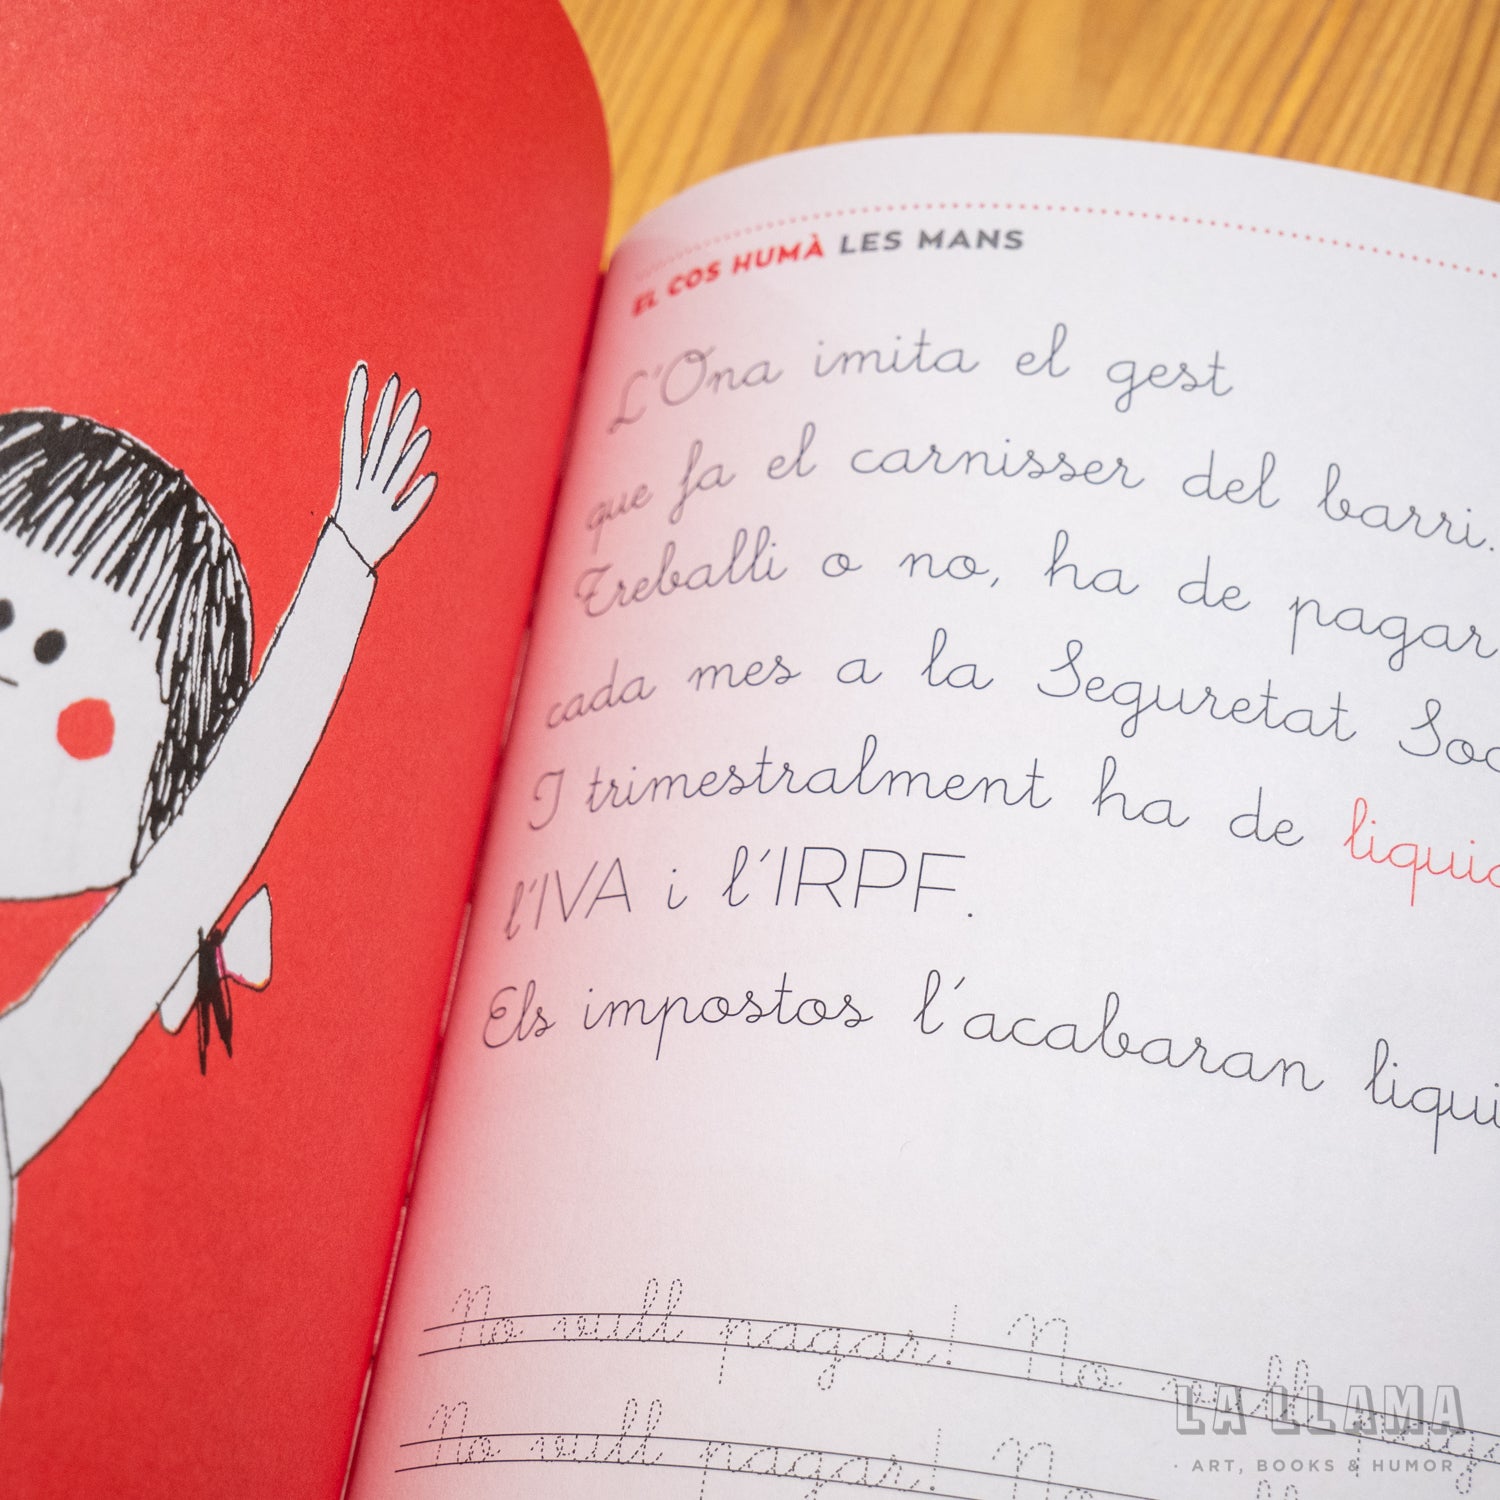 EL COS HUMÀ LES MANS
L'Ona imita el gest
que fa el carnisser del barri.
Treballi o no, ha de pagar
cada mes a la Seguretat
I trimestralment ha de
l'IVA i l'IRPF.
Els impostos l'acabaran
No vull pagar! No vull
No vull pagar! No
LA LLAMA
· ART, BOOKS & HUMOR ·